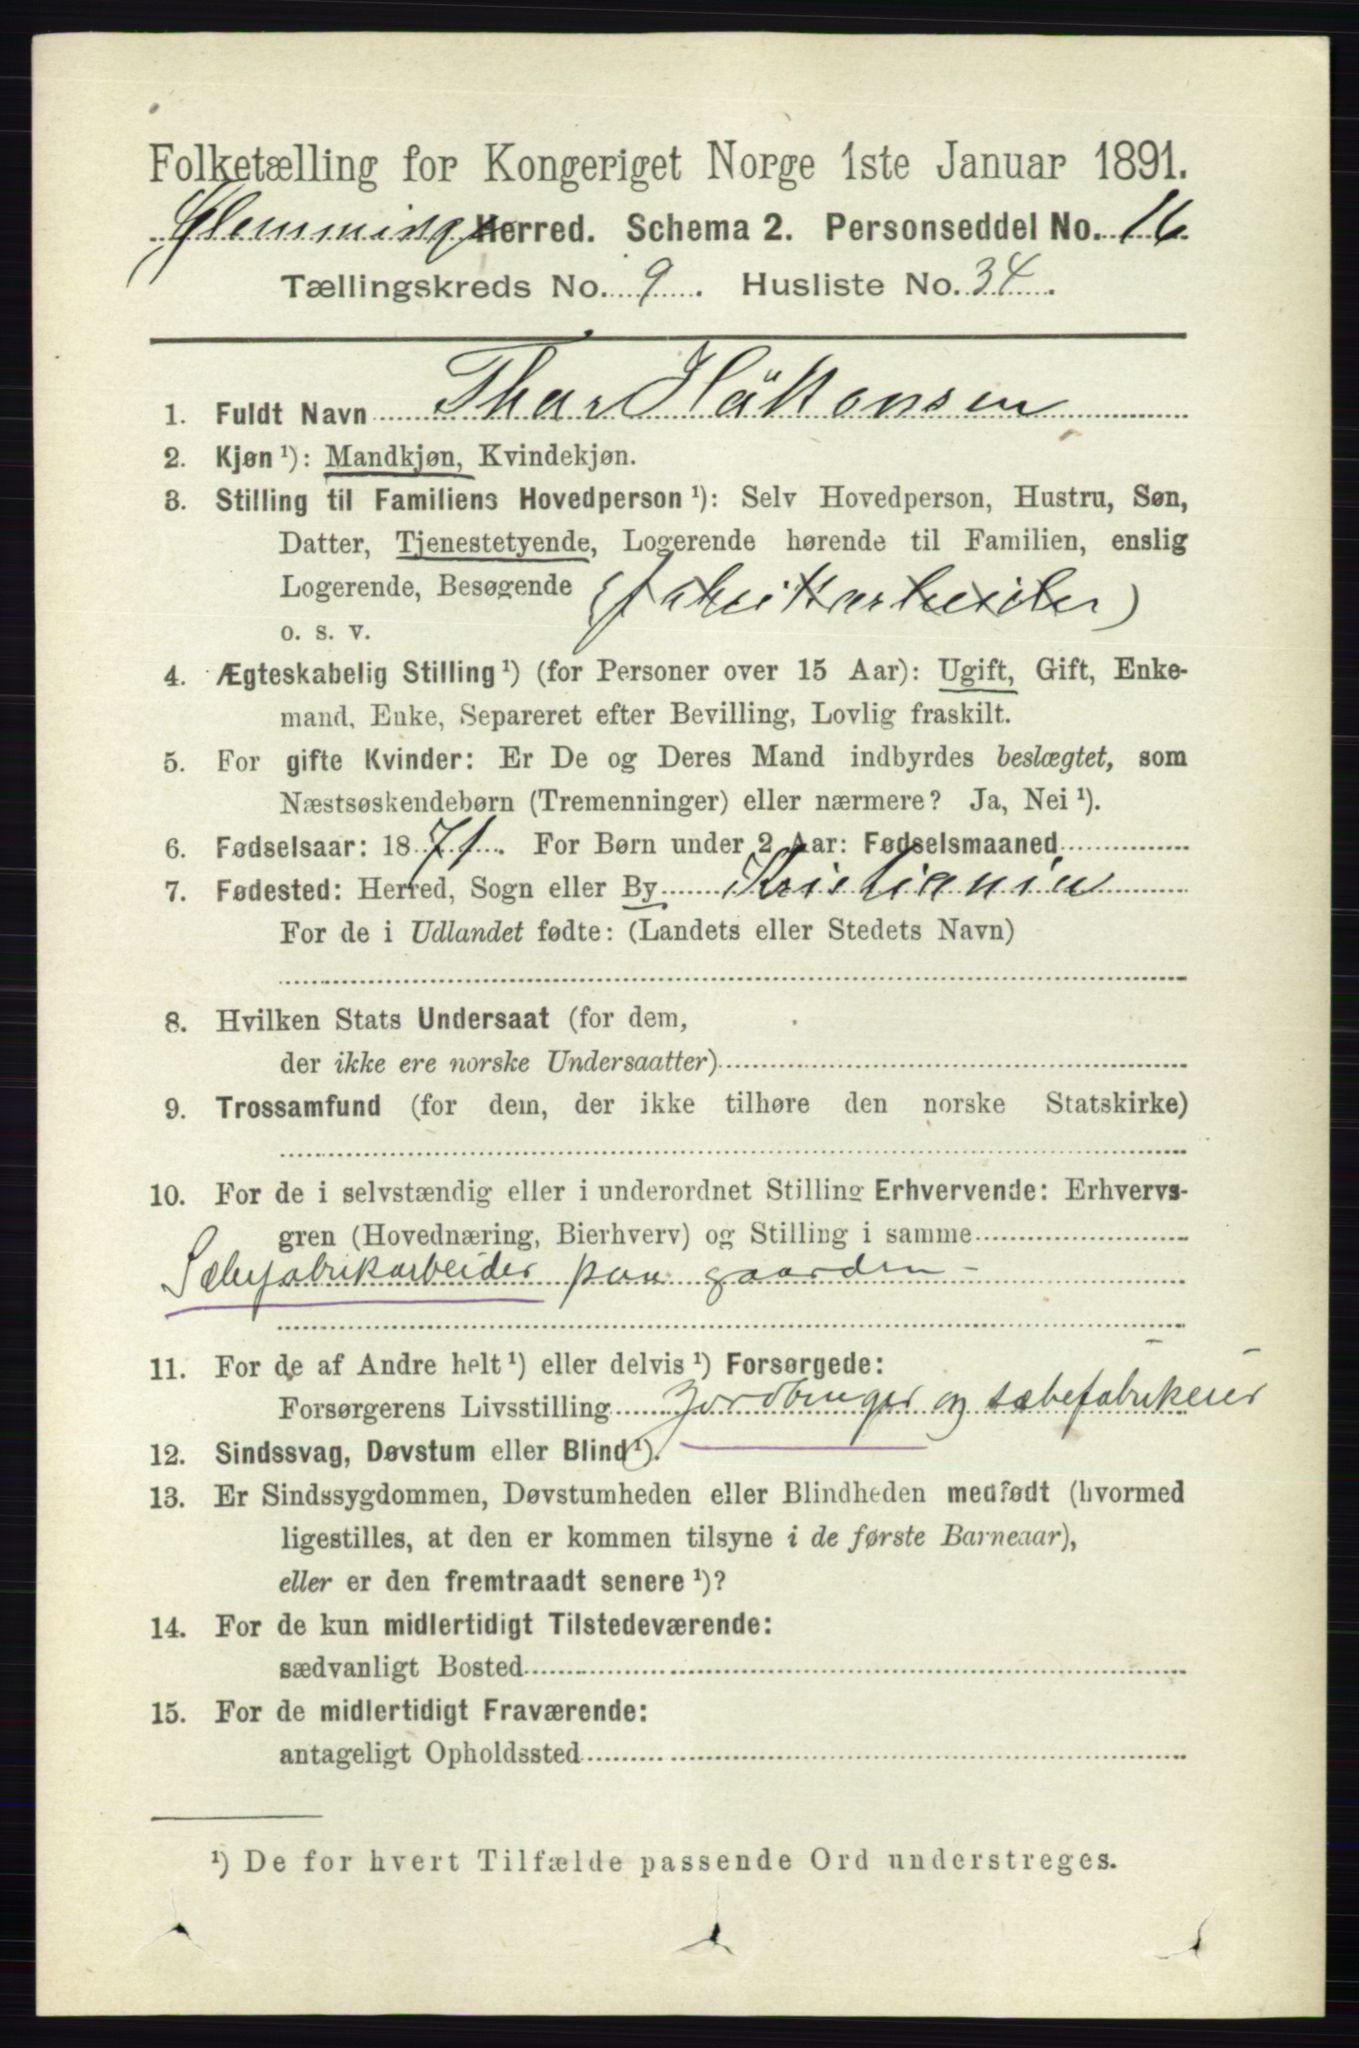 Folketælling for Kongeriget Norge 1ste Januar 1891.
Glemminge Herred. Schema 2. Personseddel No. 16
Tællingskreds No. 9. Husliste No. 34.
1. Fuldt Navn Thor Håkonsen
2. Kjøn ¹): Mandkjøn, Kvindekjøn.
3. Stilling til Familiens Hovedperson ¹): Selv Hovedperson, Hustru, Søn,
Datter, Tjenestetyende, Logerende hørende til Familien, enslig
Logerende, Besøgende (fabrikarbeider)
o. s. v.
4. Ægteskabelig Stilling ¹) (for Personer over 15 Aar): Ugift, Gift, Enke-
mand, Enke, Separeret efter Bevilling, Lovlig fraskilt.
5. For gifte Kvinder: Er De og Deres Mand indbyrdes beslægtet, som
Næstsøskendebørn (Tremenninger) eller nærmere? Ja, Nei ¹).
6. Fødselsaar: 1871. For Børn under 2 Aar: Fødselsmaaned
7. Fødested: Herred, Sogn eller By Kristiania
For de i Udlandet fødte: (Landets eller Stedets Navn)
8. Hvilken Stats Undersaat (for dem,
der ikke ere norske Undersaatter)
9. Trossamfund (for dem, der ikke tilhøre den norske Statskirke)
10. For de i selvstændig eller i underordnet Stilling Erhvervende: Erhvervs-
gren (Hovednæring, Bierhverv) og Stilling i samme
Sæbefabrikarbeider paa gaarden -
11. For de af Andre helt ¹) eller delvis ¹) Forsørgede:
Forsørgerens Livsstilling Jordbruger og sæbefabrikeier
12. Sindssvag, Døvstum eller Blind ¹).
13. Er Sindssygdommen, Døvstumheden eller Blindheden medfødt (hvormed
ligestilles, at den er kommen tilsyne i de første Barneaar),
eller er den fremtraadt senere ¹)?
14. For de kun midlertidigt Tilstedeværende:
sædvanligt Bosted
15. For de midlertidigt Fraværende:
antageligt Opholdssted
¹) De for hvert Tilfælde passende Ord understreges.